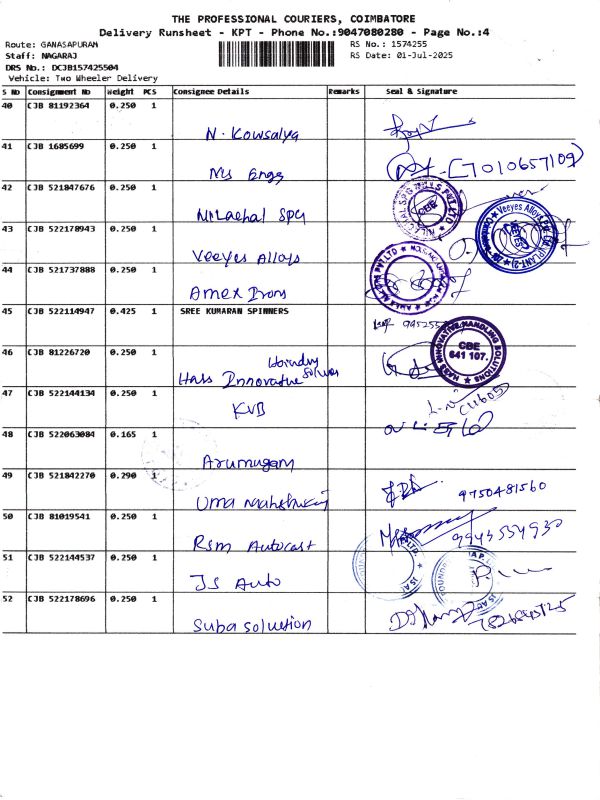 THE PROFESSIONAL COURIERS, COIMBATORE
Delivery Runsheet - KPT - Phone No.:9047080280 - Page No.:4
Route: GANASAPURAM RS No.: 1574255
Staff: NAGARAJ RS Date: 01-Jul-2025
DRS No.: DCJB157425504
Vehicle: Two Wheeler Delivery
S No Consignment No Weight PCS Consignee Details Remarks Seal & Signature
40 CJB 81192364 0.250 1
N. Kowsalya
41 CJB 1685699 0.250 1
Ms Engg 7010657109
42 CJB 521847676 0.250 1
Nilachal SPG
43 CJB 522178943 0.250 1
Veeyes Alloys
44 CJB 521737888 0.250 1
Amex Irons
45 CJB 522114947 0.425 1 SREE KUMARAN SPINNERS
46 CJB 81226720 0.250 1
CBE
641 107.
HASS INNOVATIVE HANDLING SOLUTIONS
Hass Innovative
47 CJB 522144134 0.250 1
KVB
48 CJB 522063084 0.165 1
Arumugam
49 CJB 521842270 0.290 1
Uma 9750481560
50 CJB 81019541 0.250 1
Rsm Autocast 9943554930
51 CJB 522144537 0.250 1
JS Auto
52 CJB 522178696 0.250 1
Suba soluction